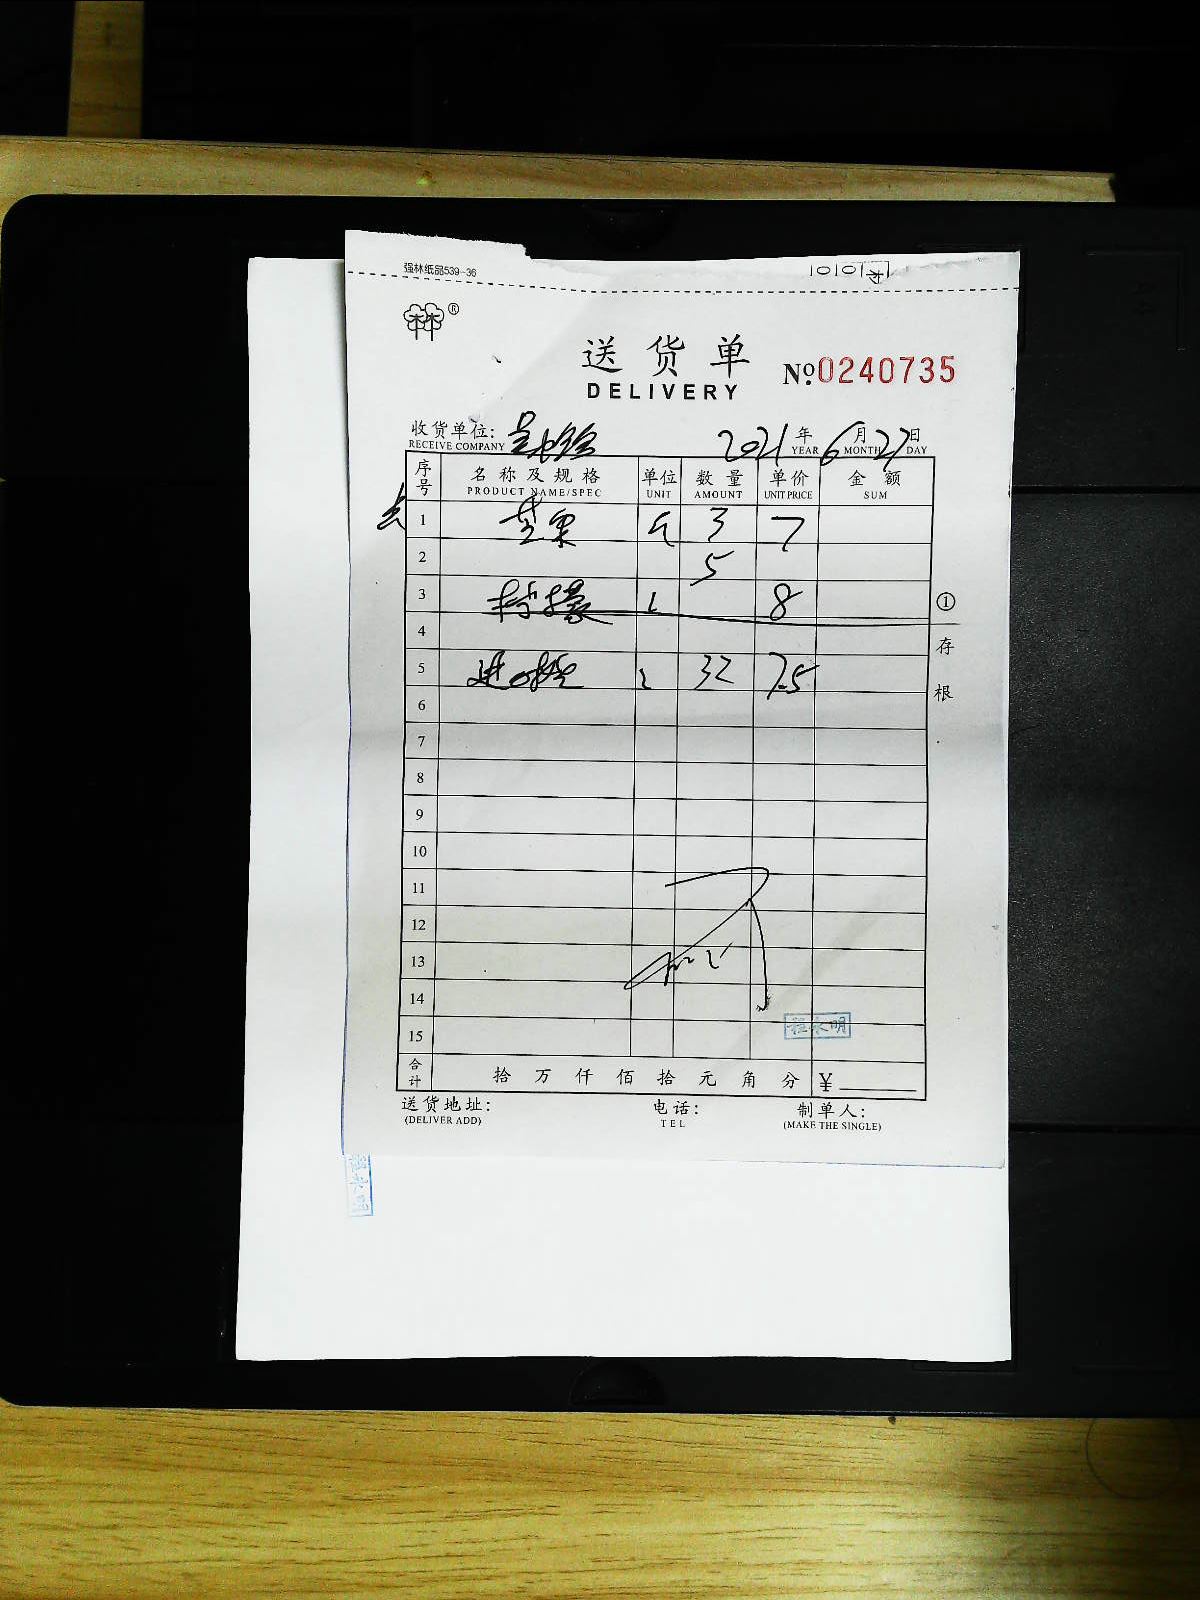 强林纸品539-36
林®
送货单
DELIVERY
№0240735
收货单位:
RECEIVE COMPANY
2021年6月27日
YEAR MONTH DAY
序号 名称及规格 单位 数量 单价 金额
PRODUCT NAME/SPEC UNIT AMOUNT UNIT PRICE SUM
去
1 芒果 斤 3 7
2 5
3 柠檬 8
4
5 进口橙 32 7.5
6
7
8
9
10
11
12
13
14
15
程永明
合计 拾 万 仟 佰 拾 元 角 分 ¥
①存根
送货地址: 电话: 制单人:
(DELIVER ADD) TEL (MAKE THE SINGLE)
程永明